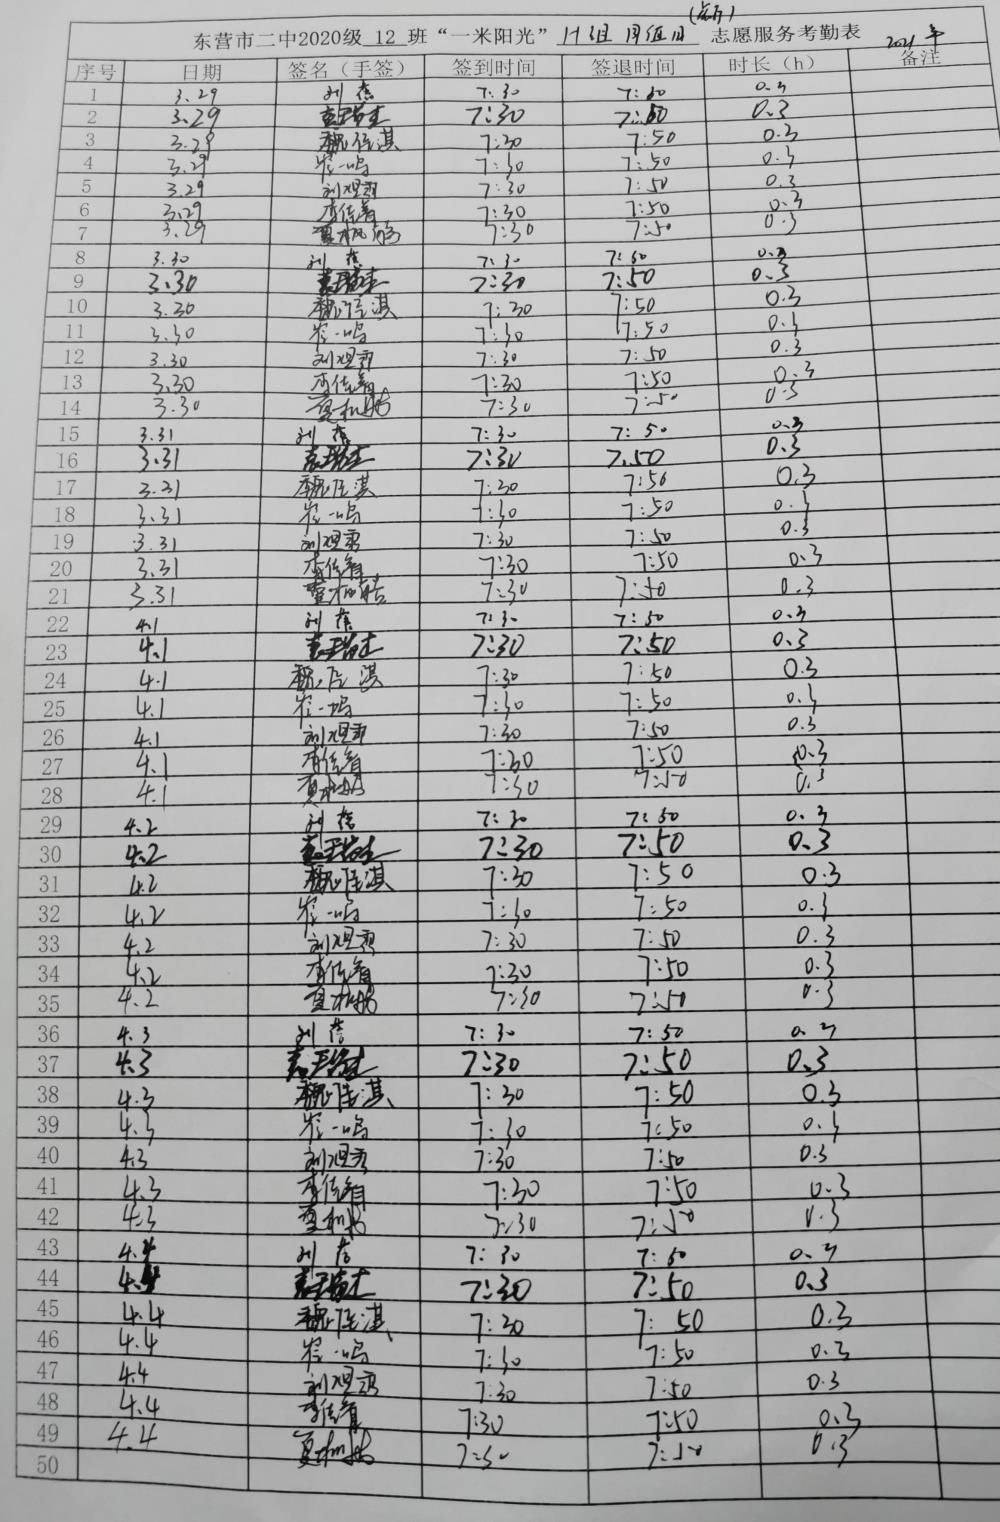 东营市二中2020级 12 班“一米阳光” 周值日 志愿服务考勤表 2021年
序号 日期 签名（手签） 签到时间 签退时间 时长（h） 备注
1 3.29 7:30 7:50 0.3
2 3.29 7:30 7:50 0.3
3 3.29 魏 淇 7:30 7:50 0.3
4 3.29 一鸣 7:30 7:50 0.3
5 3.29 刘 7:30 7:50 0.3
6 3.29 李佳 7:30 7:50 0.3
7 3.29 7:30 7:50 0.3
8 3.30 7:30 7:50 0.3
9 3.30 7:30 7:50 0.3
10 3.30 魏 淇 7:30 7:50 0.3
11 3.30 一鸣 7:30 7:50 0.3
12 3.30 刘 7:30 7:50 0.3
13 3.30 李佳 7:30 7:50 0.3
14 3.30 7:30 7:50 0.3
15 3.31 7:30 7:50 0.3
16 3.31 7:30 7:50 0.3
17 3.31 魏 淇 7:30 7:50 0.3
18 3.31 一鸣 7:30 7:50 0.3
19 3.31 刘 7:30 7:50 0.3
20 3.31 李佳 7:30 7:50 0.3
21 3.31 7:30 7:50 0.3
22 4.1 7:30 7:50 0.3
23 4.1 7:30 7:50 0.3
24 4.1 魏 淇 7:30 7:50 0.3
25 4.1 一鸣 7:30 7:50 0.3
26 4.1 刘 7:30 7:50 0.3
27 4.1 李佳 7:30 7:50 0.3
28 4.1 7:30 7:50 0.3
29 4.2 7:30 7:50 0.3
30 4.2 7:30 7:50 0.3
31 4.2 魏 淇 7:30 7:50 0.3
32 4.2 一鸣 7:30 7:50 0.3
33 4.2 刘 7:30 7:50 0.3
34 4.2 李佳 7:30 7:50 0.3
35 4.2 7:30 7:50 0.3
36 4.3 7:30 7:50 0.3
37 4.3 7:30 7:50 0.3
38 4.3 魏 淇 7:30 7:50 0.3
39 4.3 一鸣 7:30 7:50 0.3
40 4.3 刘 7:30 7:50 0.3
41 4.3 李佳 7:30 7:50 0.3
42 4.3 7:30 7:50 0.3
43 4.4 7:30 7:50 0.3
44 4.4 7:30 7:50 0.3
45 4.4 魏 淇 7:30 7:50 0.3
46 4.4 一鸣 7:30 7:50 0.3
47 4.4 刘 7:30 7:50 0.3
48 4.4 李佳 7:30 7:50 0.3
49 4.4 7:30 7:50 0.3
50